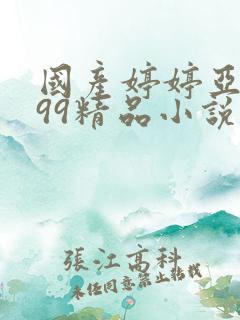 國產婷婷亞
99精品小說
張江高科
未經同意禁止轉載